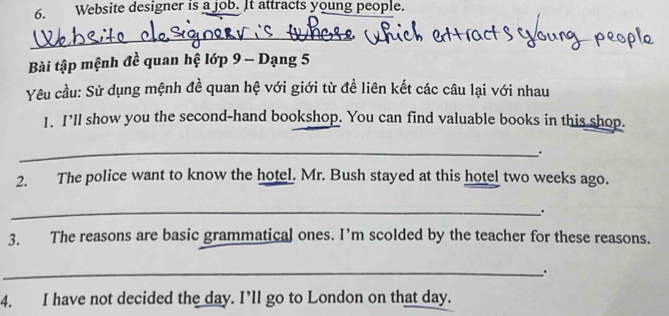 6. Website designer is a job. It attracts young people.
Website designer is which attracts young people
Bài tập mệnh đề quan hệ lớp 9 – Dạng 5
Yêu cầu: Sử dụng mệnh đề quan hệ với giới từ để liên kết các câu lại với nhau
1. I'll show you the second-hand bookshop. You can find valuable books in this shop.
2. The police want to know the hotel. Mr. Bush stayed at this hotel two weeks ago.
3. The reasons are basic grammatical ones. I'm scolded by the teacher for these reasons.
4. I have not decided the day. I'll go to London on that day.